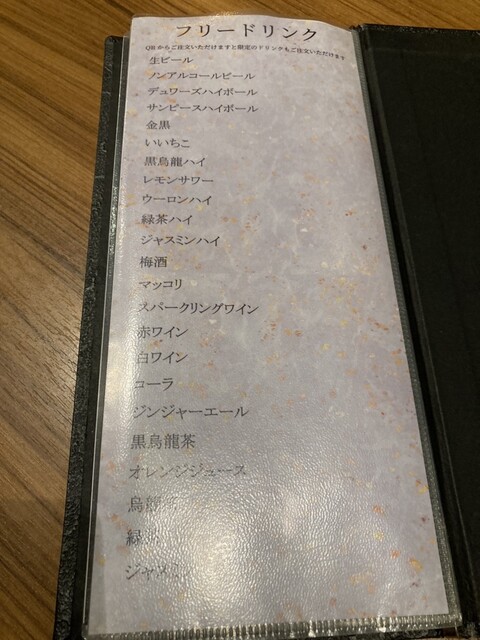 フリードリンク
QRからご注文いただけますと限定のドリンクもご注文いただけます
生ビール
ノンアルコールビール
デュワーズハイボール
サンピースハイボール
金黒
いいちこ
黒烏龍ハイ
レモンサワー
ウーロンハイ
緑茶ハイ
ジャスミンハイ
梅酒
マッコリ
スパークリングワイン
赤ワイン
白ワイン
コーラ
ジンジャーエール
黒烏龍茶
オレンジジュース
烏龍
緑
ジャス